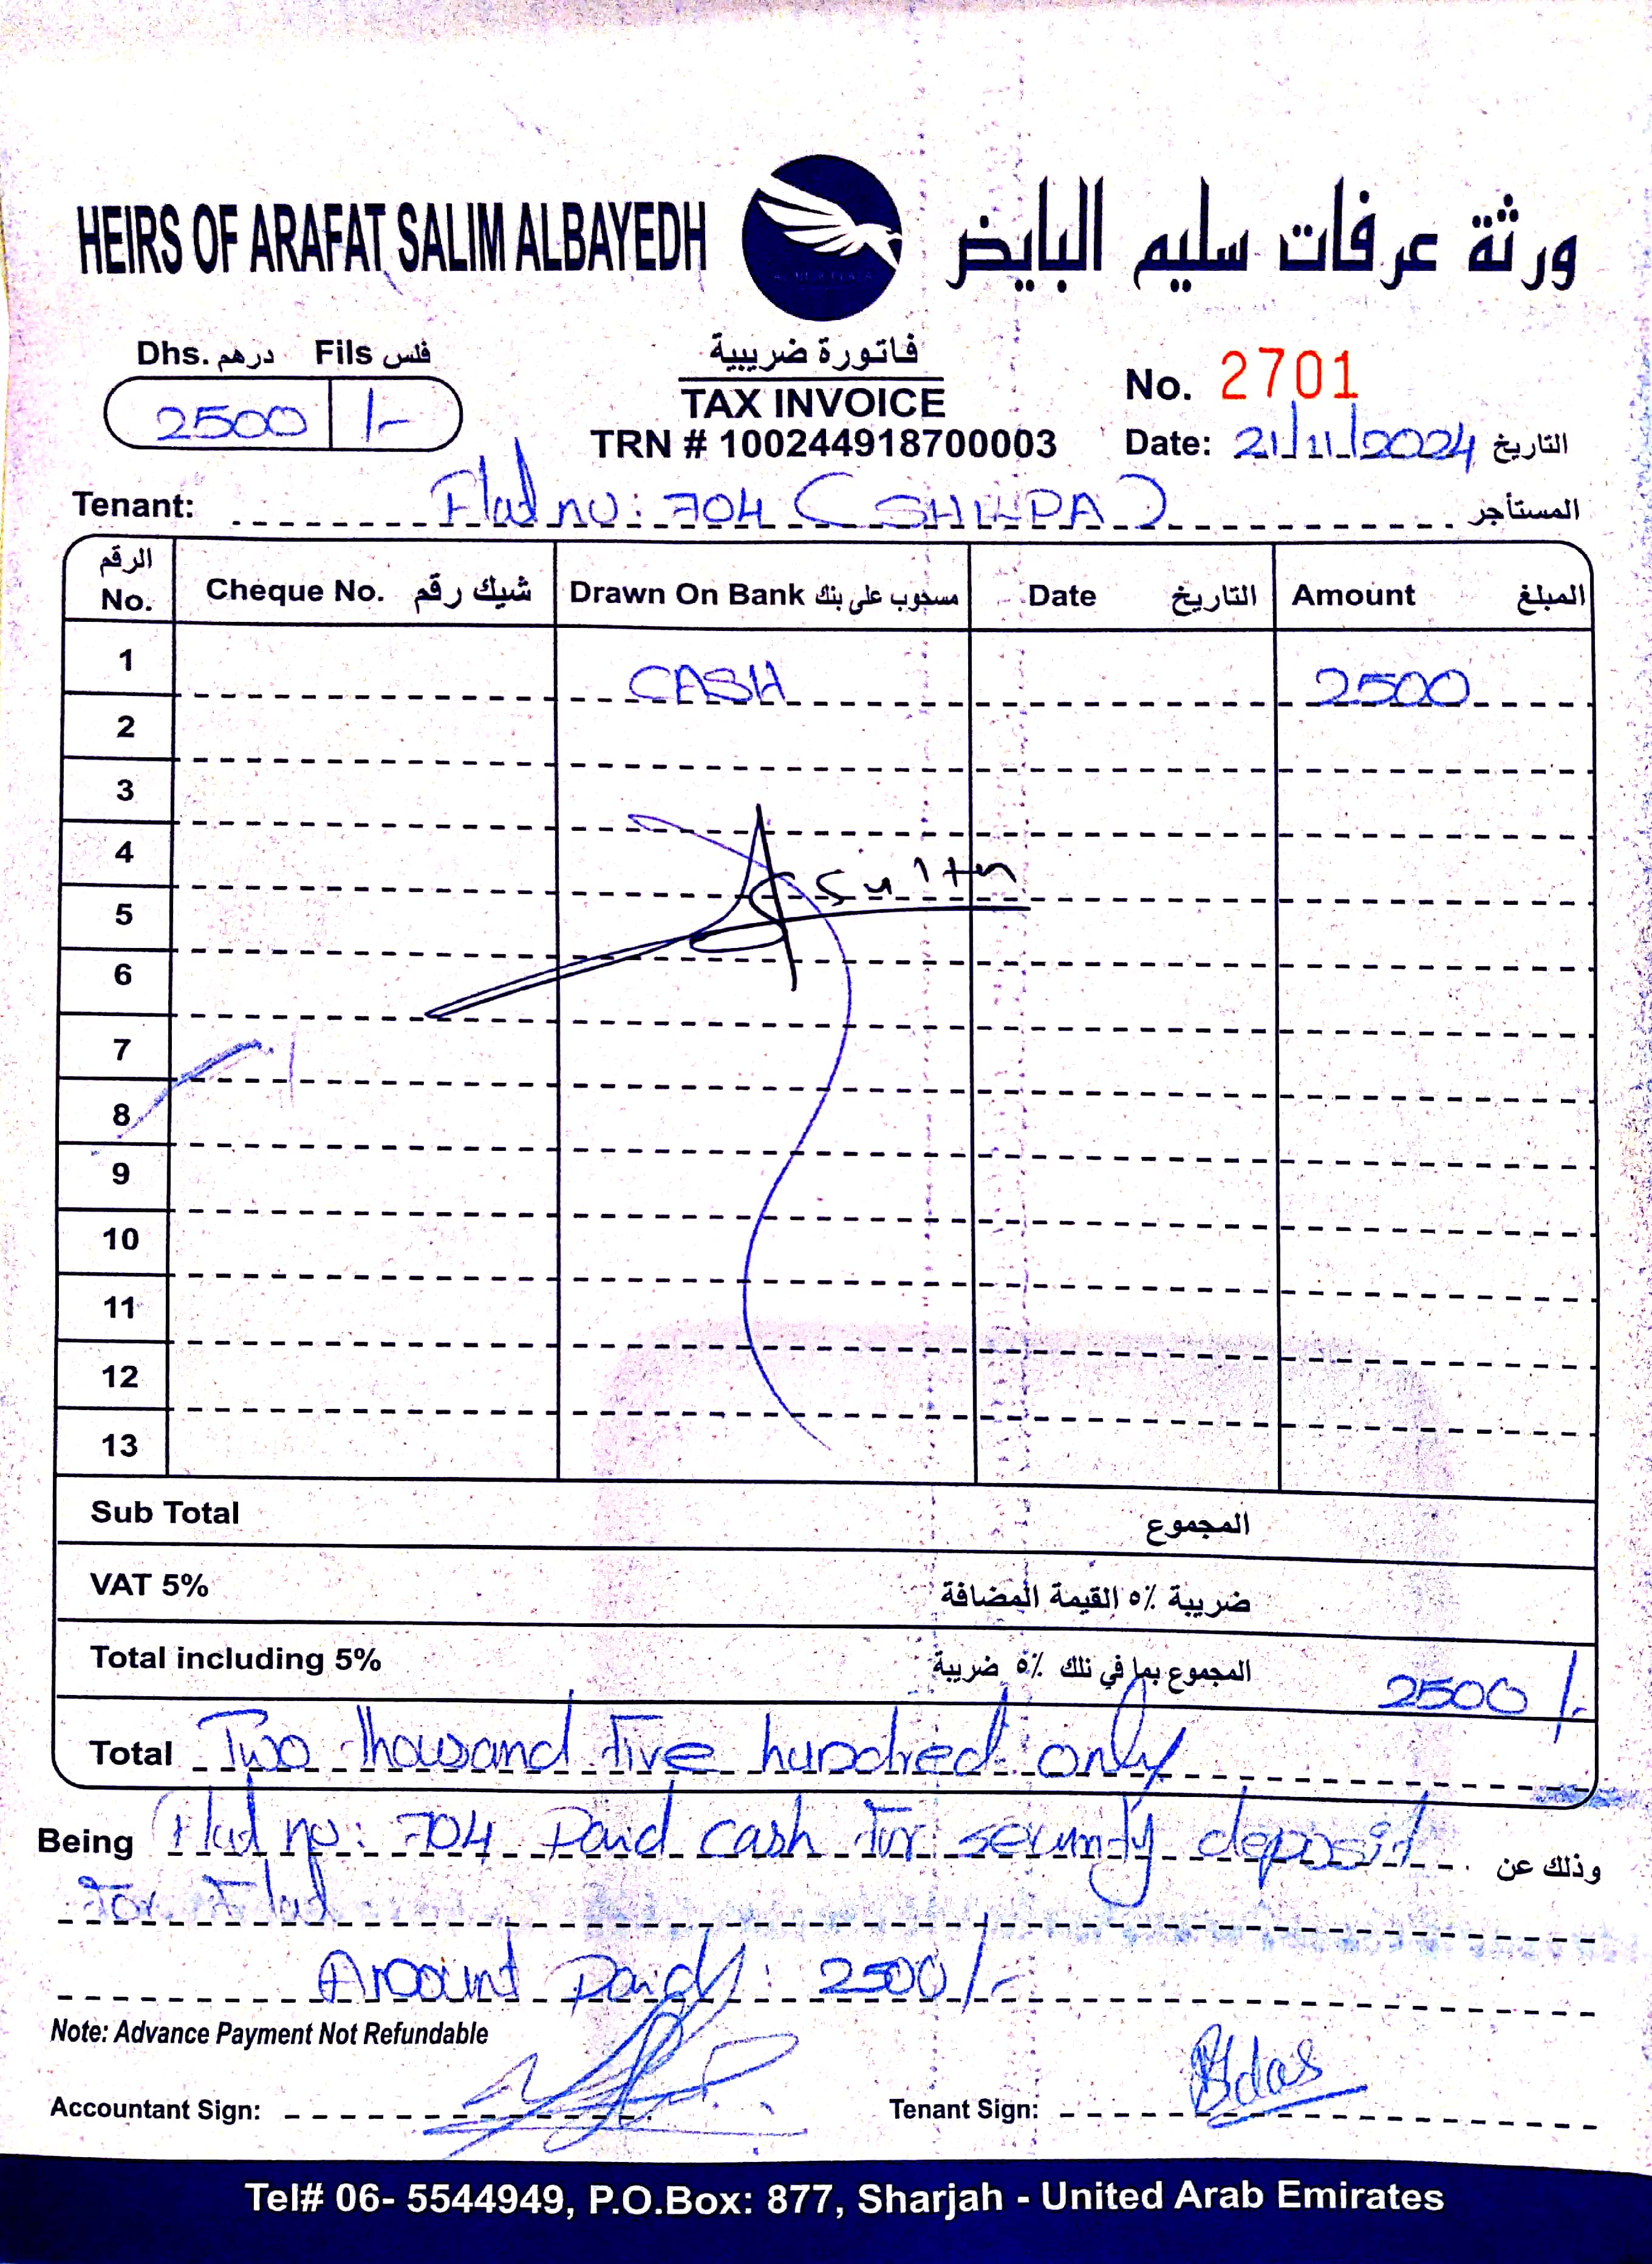 HEIRS OF ARAFAT SALIM ALBAYEDH
ورثة عرفات سليم البايض
Dhs. درهم Fils فلس
2500 /-
فاتورة ضريبية
TAX INVOICE
TRN # 100244918700003
No. 2701
Date: 21/11/2024 التاريخ
Tenant: Flat no: 704 (SHILPA) المستأجر
الرقم No. Cheque No. شيك رقم Drawn On Bank مسحوب على بنك Date التاريخ Amount المبلغ
1 CASH 2500
2
3
4
Sultn
5
6
7
8
9
10
11
12
13
Sub Total المجموع
VAT 5% ضريبة ٥٪ القيمة المضافة
Total including 5% المجموع بما في ذلك ٥٪ ضريبة 2500/-
Total Two thousand five hundred only
Being Flat no: 704 Paid cash for security deposit وذلك عن
for Flat
Amount Paid: 2500/-
Note: Advance Payment Not Refundable
Accountant Sign:
Tenant Sign:
Tel# 06- 5544949, P.O.Box: 877, Sharjah - United Arab Emirates